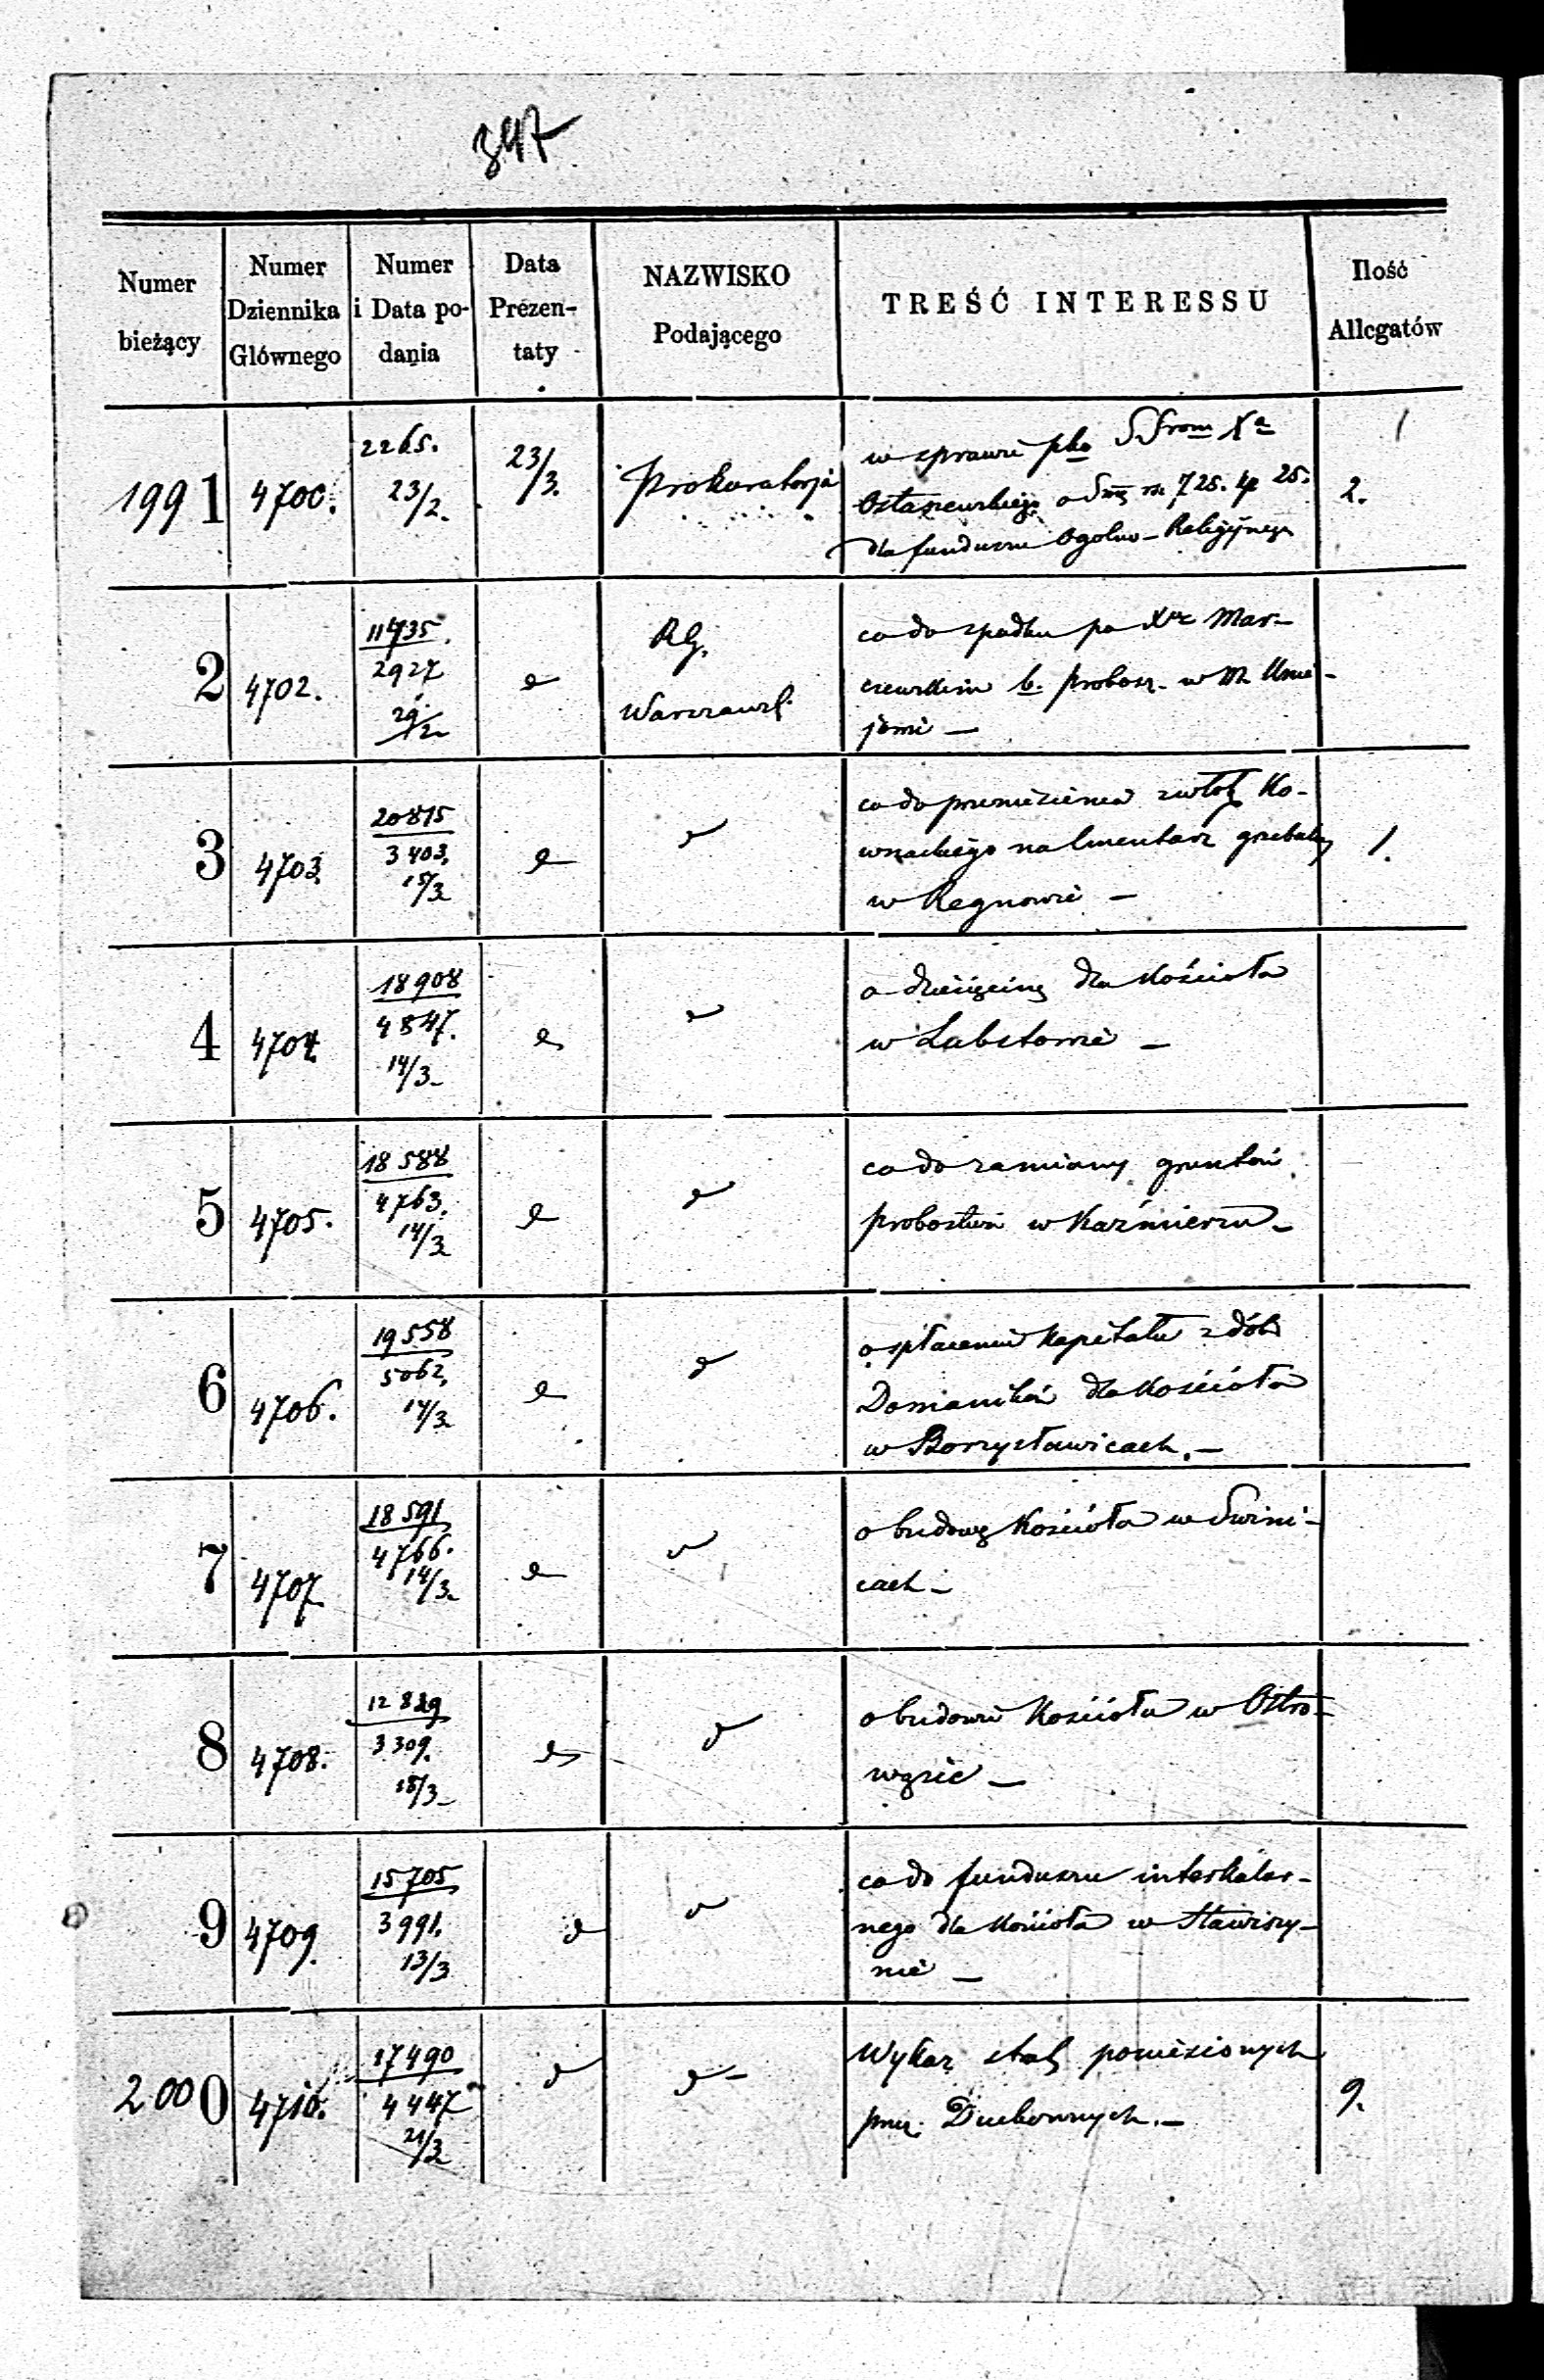 347
Numer bieżący
Numer Dziennika Głównego
Numer i Data podania
Data Prezentaty
NAZWISKO Podającego
TREŚĆ INTERESSU
Ilość Allegatów
1991
4700.
2265.
23/2.
23/3.
Prokuratorja
w sprawie pko SSrom Xa
Ostaszewskiego o Smę rs. 725. kp 25.
dla funduszu Ogolno-Religijnego
2.
2
4702.
11435.
2927
29/12
RG.
Warszawsk.
co do spadku po Xdz Mar-
czewskim b. probosz. w m. Unie-
jowie —
3
4703
20815
3403,
15/3
co do przeniesienia zwłok Ko-
wnackiego na Cmentarz grzebalny
w Regnowie —
1.
4
4704
18908
4847.
14/3
o dziesięcinę dla Kościoła
w Lubstowie —
5
4705.
18588
4763.
14/3
co do zamiany gruntów
probostwa w Kaźmierzu —
6
4706.
19558
5062,
14/3
o spłacenie Kapitału z dóbr
Domaników dla Kościoła
w Borzysławicach. —
7
4707
18591
4766.
14/3
o budowę Kościoła w Swini-
cach —
8
4708.
3309.
18/3
o budowie Kościoła w Ostro-
wąsie —
9
4709.
15705
3991.
13/3
co do funduszu interkalar-
nego dla Kościoła w Stawiszy-
nie —
2000
4710.
17490
4447
21/3
Wykaz strat poniesionych
przez Duchownych. —
9.